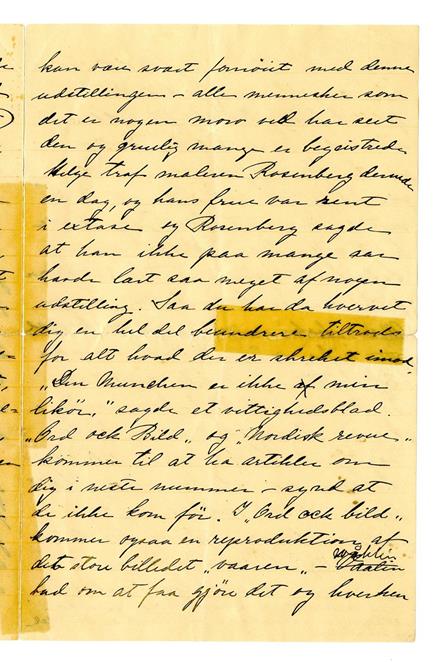 kan være svært fornøiet med denne
udstillingen – alle mennesker som
det er nogen moro ved har seet
den og gruelig mange er begeistrede
Helge traf maleren Rosenberg dernede
en dag, og hans frue var rent
i extase og Rosenberg sagde
at han ikke paa mange aar
havde lært saa meget af nogen
udstilling. Saa du har da hvervet
dig en hel del beundrere tiltrods
for alt hvad der er skreket imod
„Din Munchen er ikke af min
likör,” sagde et vittighedsblad.
„Ord och Bild„ og „Nordisk revue„
kommer til at ha artikler om
dig i neste nummer – synd at
de ikke kom før. I „Ord och bild„
kommer ogsaa en reproduktion af
det store billedet „vaaren„ – Wåhlin
bad om at faa gjøre det og hverken